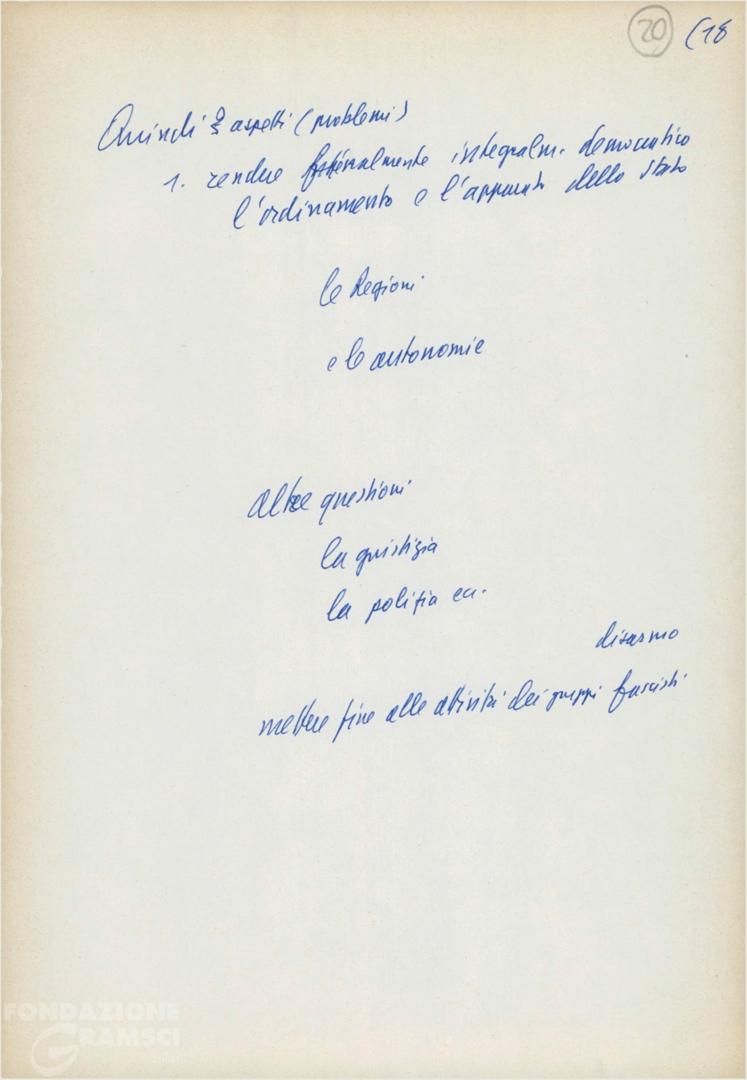 20 (18
Quindi 2 aspetti (problemi)
1. rendere integralm. democratico
l'ordinamento e l'apparato dello Stato
le Regioni
e le autonomie
altre questioni
la giustizia
la polizia ecc.
disarmo
mettere fine alle attività dei gruppi fascisti
FONDAZIONE
GRAMSCI